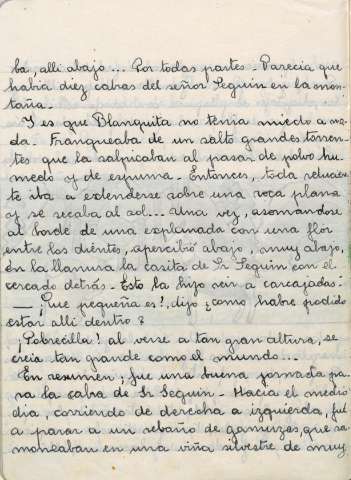 ba, alli abajo... Por todas partes. Parecia que
habia diez cabas del señor Seguin en la mon-
taña.
Y es que Blanquita no tenia miedo a na-
da. Franqueaba de un salto grandes torren-
tes que la salpicaban al pasar de polvo hu-
medo y de espuma. Entonces, toda reluciente
te iba a extenderse sobre una roca plana
y se secaba al sol... Una vez, asomandose
al borde de una explanada con una flor
entre los dientes, apercibió abajo, muy abajo,
en la llanura la casita de Sr Seguin con el
cercado detrás. Esto la hizo reir a carcajadas:
— ¡Que pequeña es!, dijo ¿como habre podido
estar alli dentro?
¡Pobrecilla! al verse a tan gran altura, se
creia tan grande como el mundo...
En resumen; fue una buena jornada pa-
ra la caba de Sr Seguin. Hacia el medio
dia, corriendo de derecha a izquierda, fué
a parar a un rebaño de gamuzas, que ra-
moneaban en una viña silvestre de muy